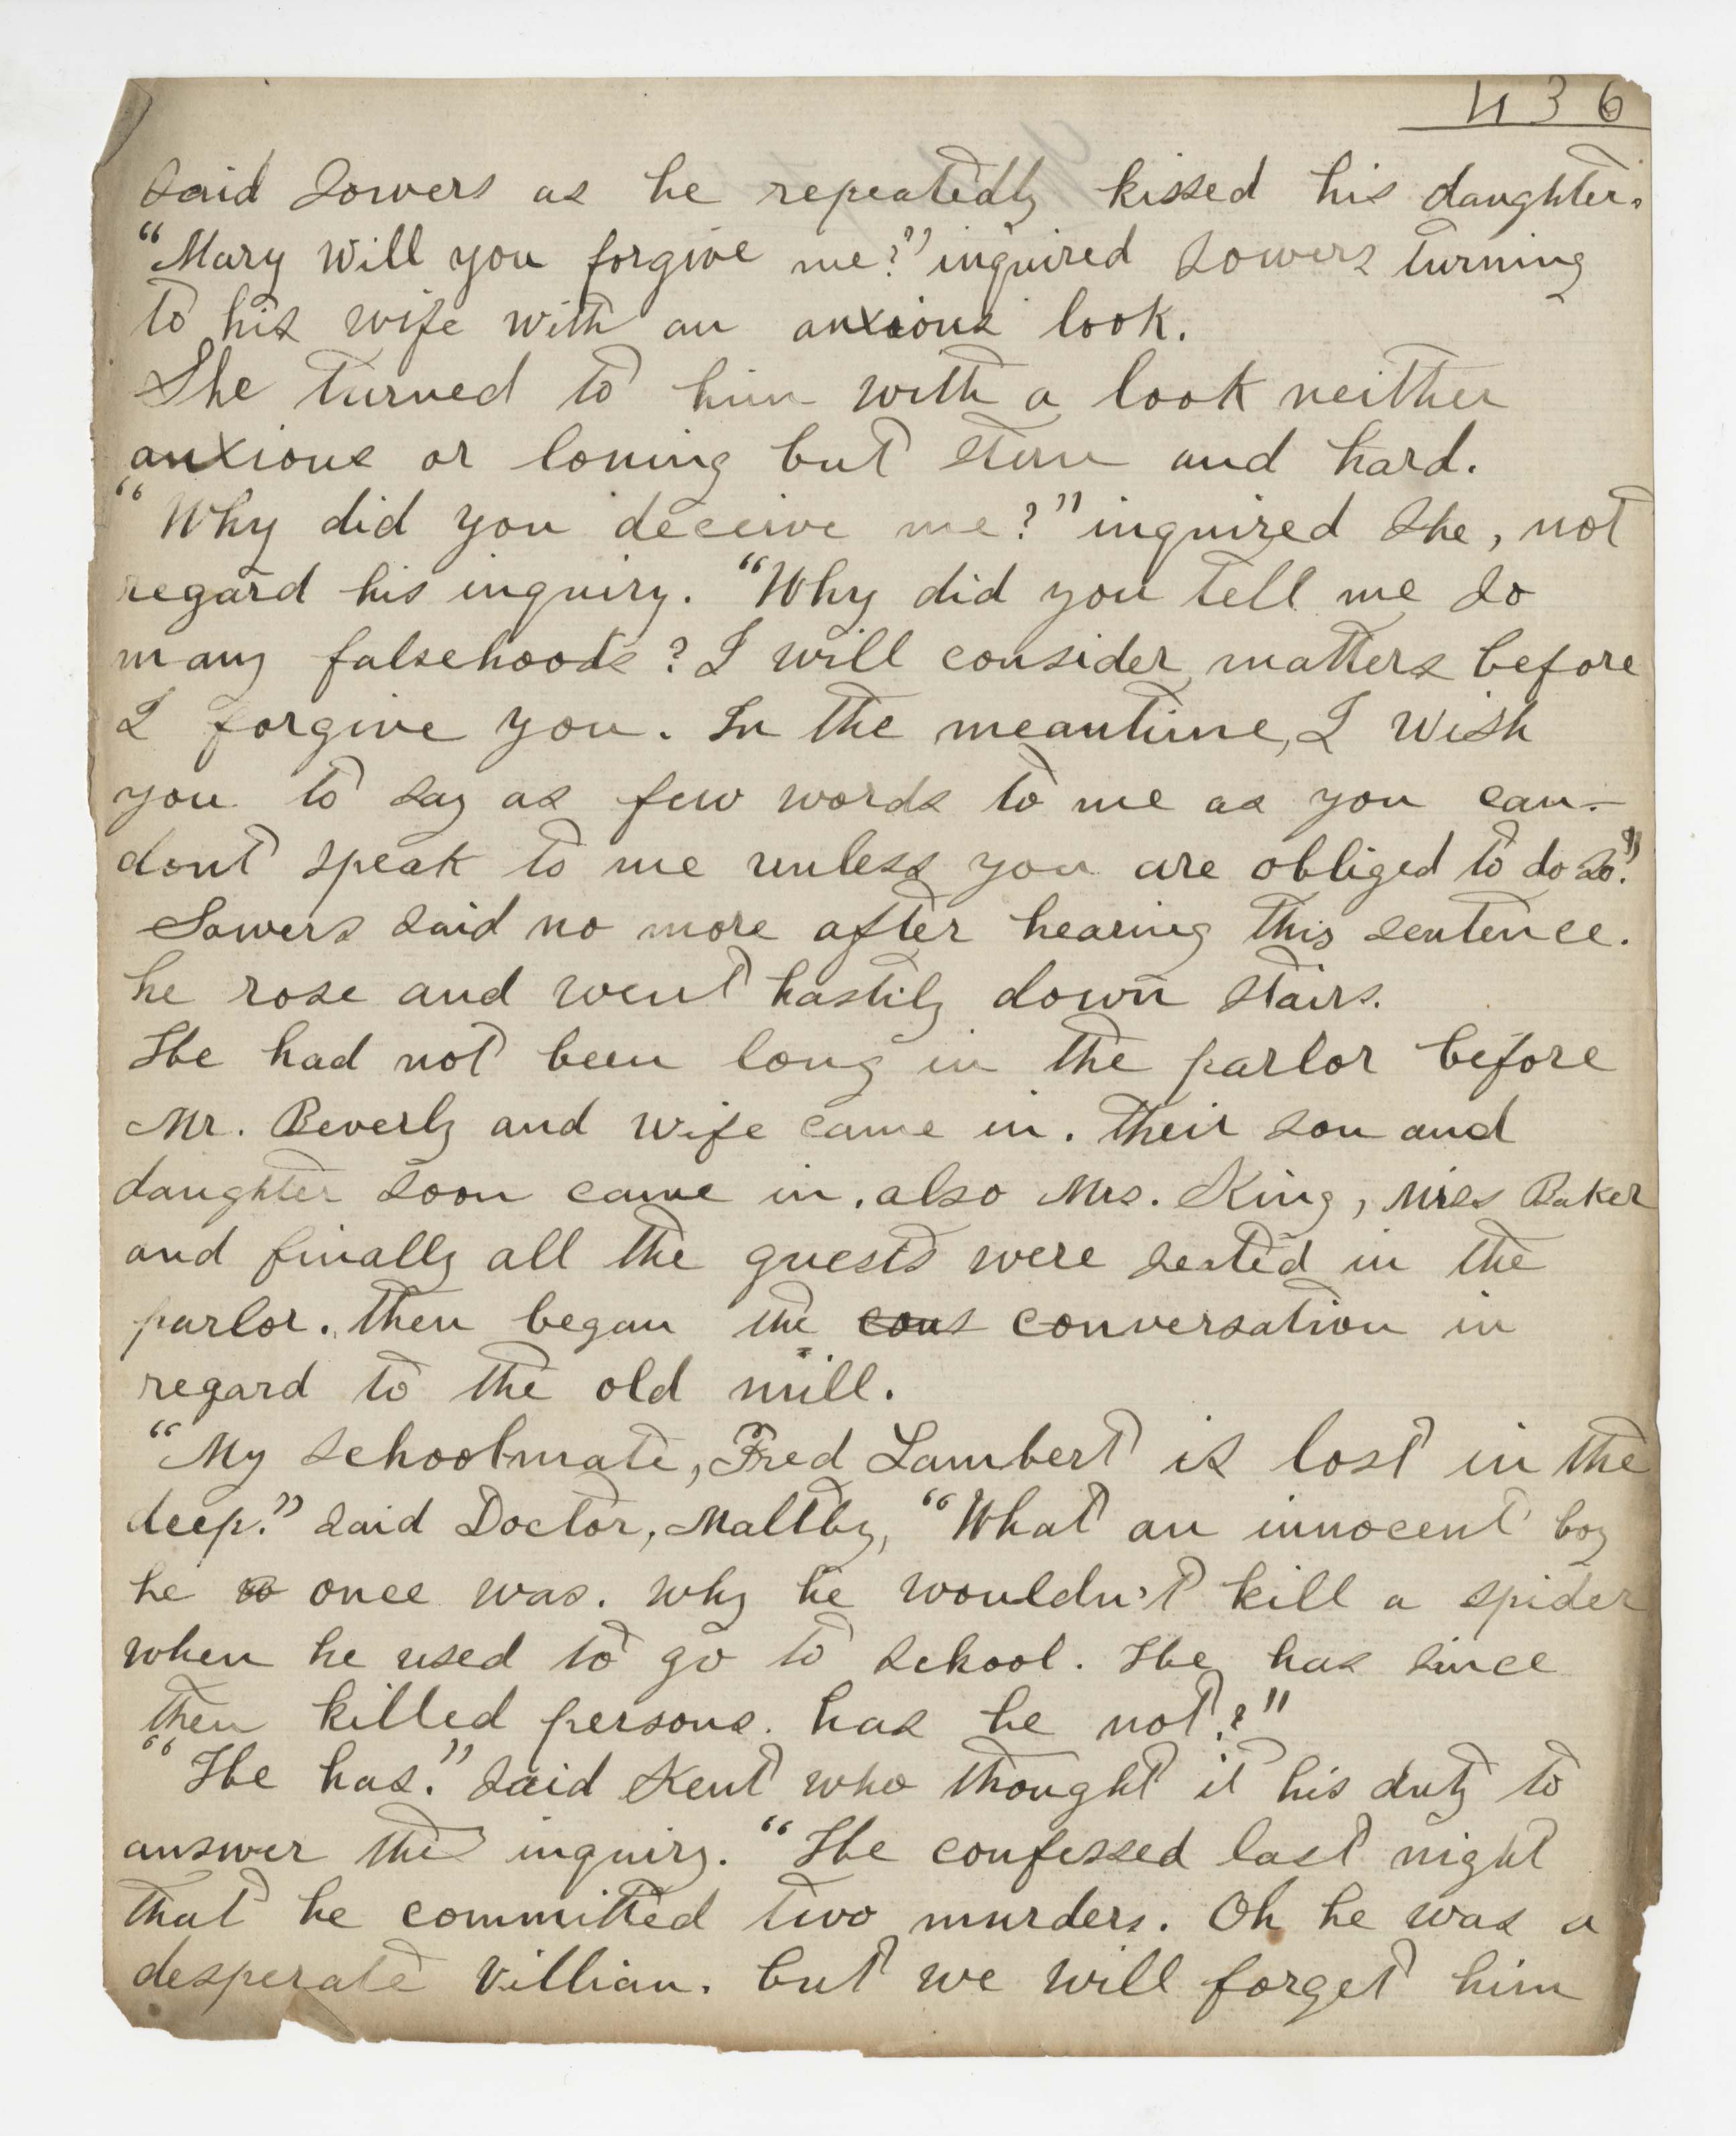 436
said Sowers as he repeatedly kissed his daughter.
"Mary will you forgive me?" inquired Sowers turning
to his wife with an anxious look.
She turned to him with a look neither
anxious or loving but stern and hard.
"Why did you deceive me?" inquired she, not
regard his inquiry. "Why did you tell me so
many falsehoods? I will consider matters before
I forgive you. In the meantime, I wish
you to say as few words to me as you can.—
dont speak to me unless you are obliged to do so."
Sowers said no more after hearing this sentence.
he rose and went hastily down stairs.
He had not been long in the parlor before
Mr. Beverly and wife came in. Their son and
daughter soon came in. also Mrs. King, Miss Baker
and finally all the guests were seated in the
parlor. Then began the cons conversation in
regard to the old mill.
"My schoolmate, Fred Lambert is lost in the
deep." said Doctor, Maltby, "What an innocent boy
he once was. why he wouldn't kill a spider
when he used to go to school. He has since
then killed persons. has he not?"
"He has." said Kent who thought it his duty to
answer the inquiry. "He confessed last night
that he committed two murders. Oh he was a
desperate villian. but we will forget him